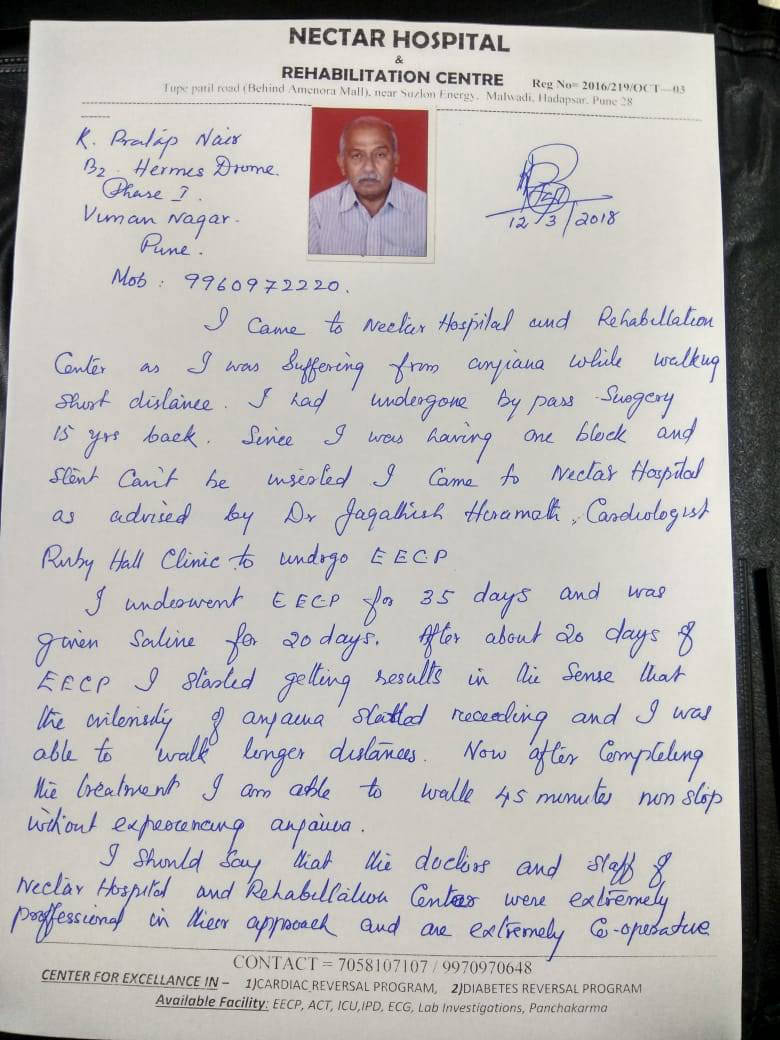 NECTAR HOSPITAL
&
REHABILITATION CENTRE
Reg No= 2016/219/OCT-03
Tupe patil road (Behind Amenora Mall), near Suzlon Energy, Malwadi, Hadapsar, Pune 28
K. Pratap Nair
B2 Hermes Drome
Phase I.
Viman Nagar.
Pune.
Mob : 9960972220.
12/3/2018
I Came to Nectar Hospital and Rehabillation
Center as I was Suffering from anjiana while walking
Short distance. I had undergone by pass Surgery
15 yrs back. Since I was having one block and
Stent Can't be inserted I Came to Nectar Hospital
as advised by Dr Jagathish Heramath, Cardiologist
Ruby Hall Clinic to undrgo EECP
I underwent EECP for 35 days and was
given Saline for 20 days. After about 20 days of
EECP I Started getting results in the Sense that
the intensity of anjaina Statted receeding and I was
able to walk longer distances. Now after Completing
the treatment I am able to walk 45 minutes non stop
without experiencing anjaina.
I Should Say that the doctors and staff of
Nectar Hospital and Rehabillation Center were extremely
proffessional in their approach and are extremely Co-operative
CONTACT = 7058107107 / 9970970648
CENTER FOR EXCELLANCE IN – 1)CARDIAC REVERSAL PROGRAM, 2)DIABETES REVERSAL PROGRAM
Available Facility: EECP, ACT, ICU,IPD, ECG, Lab Investigations, Panchakarma